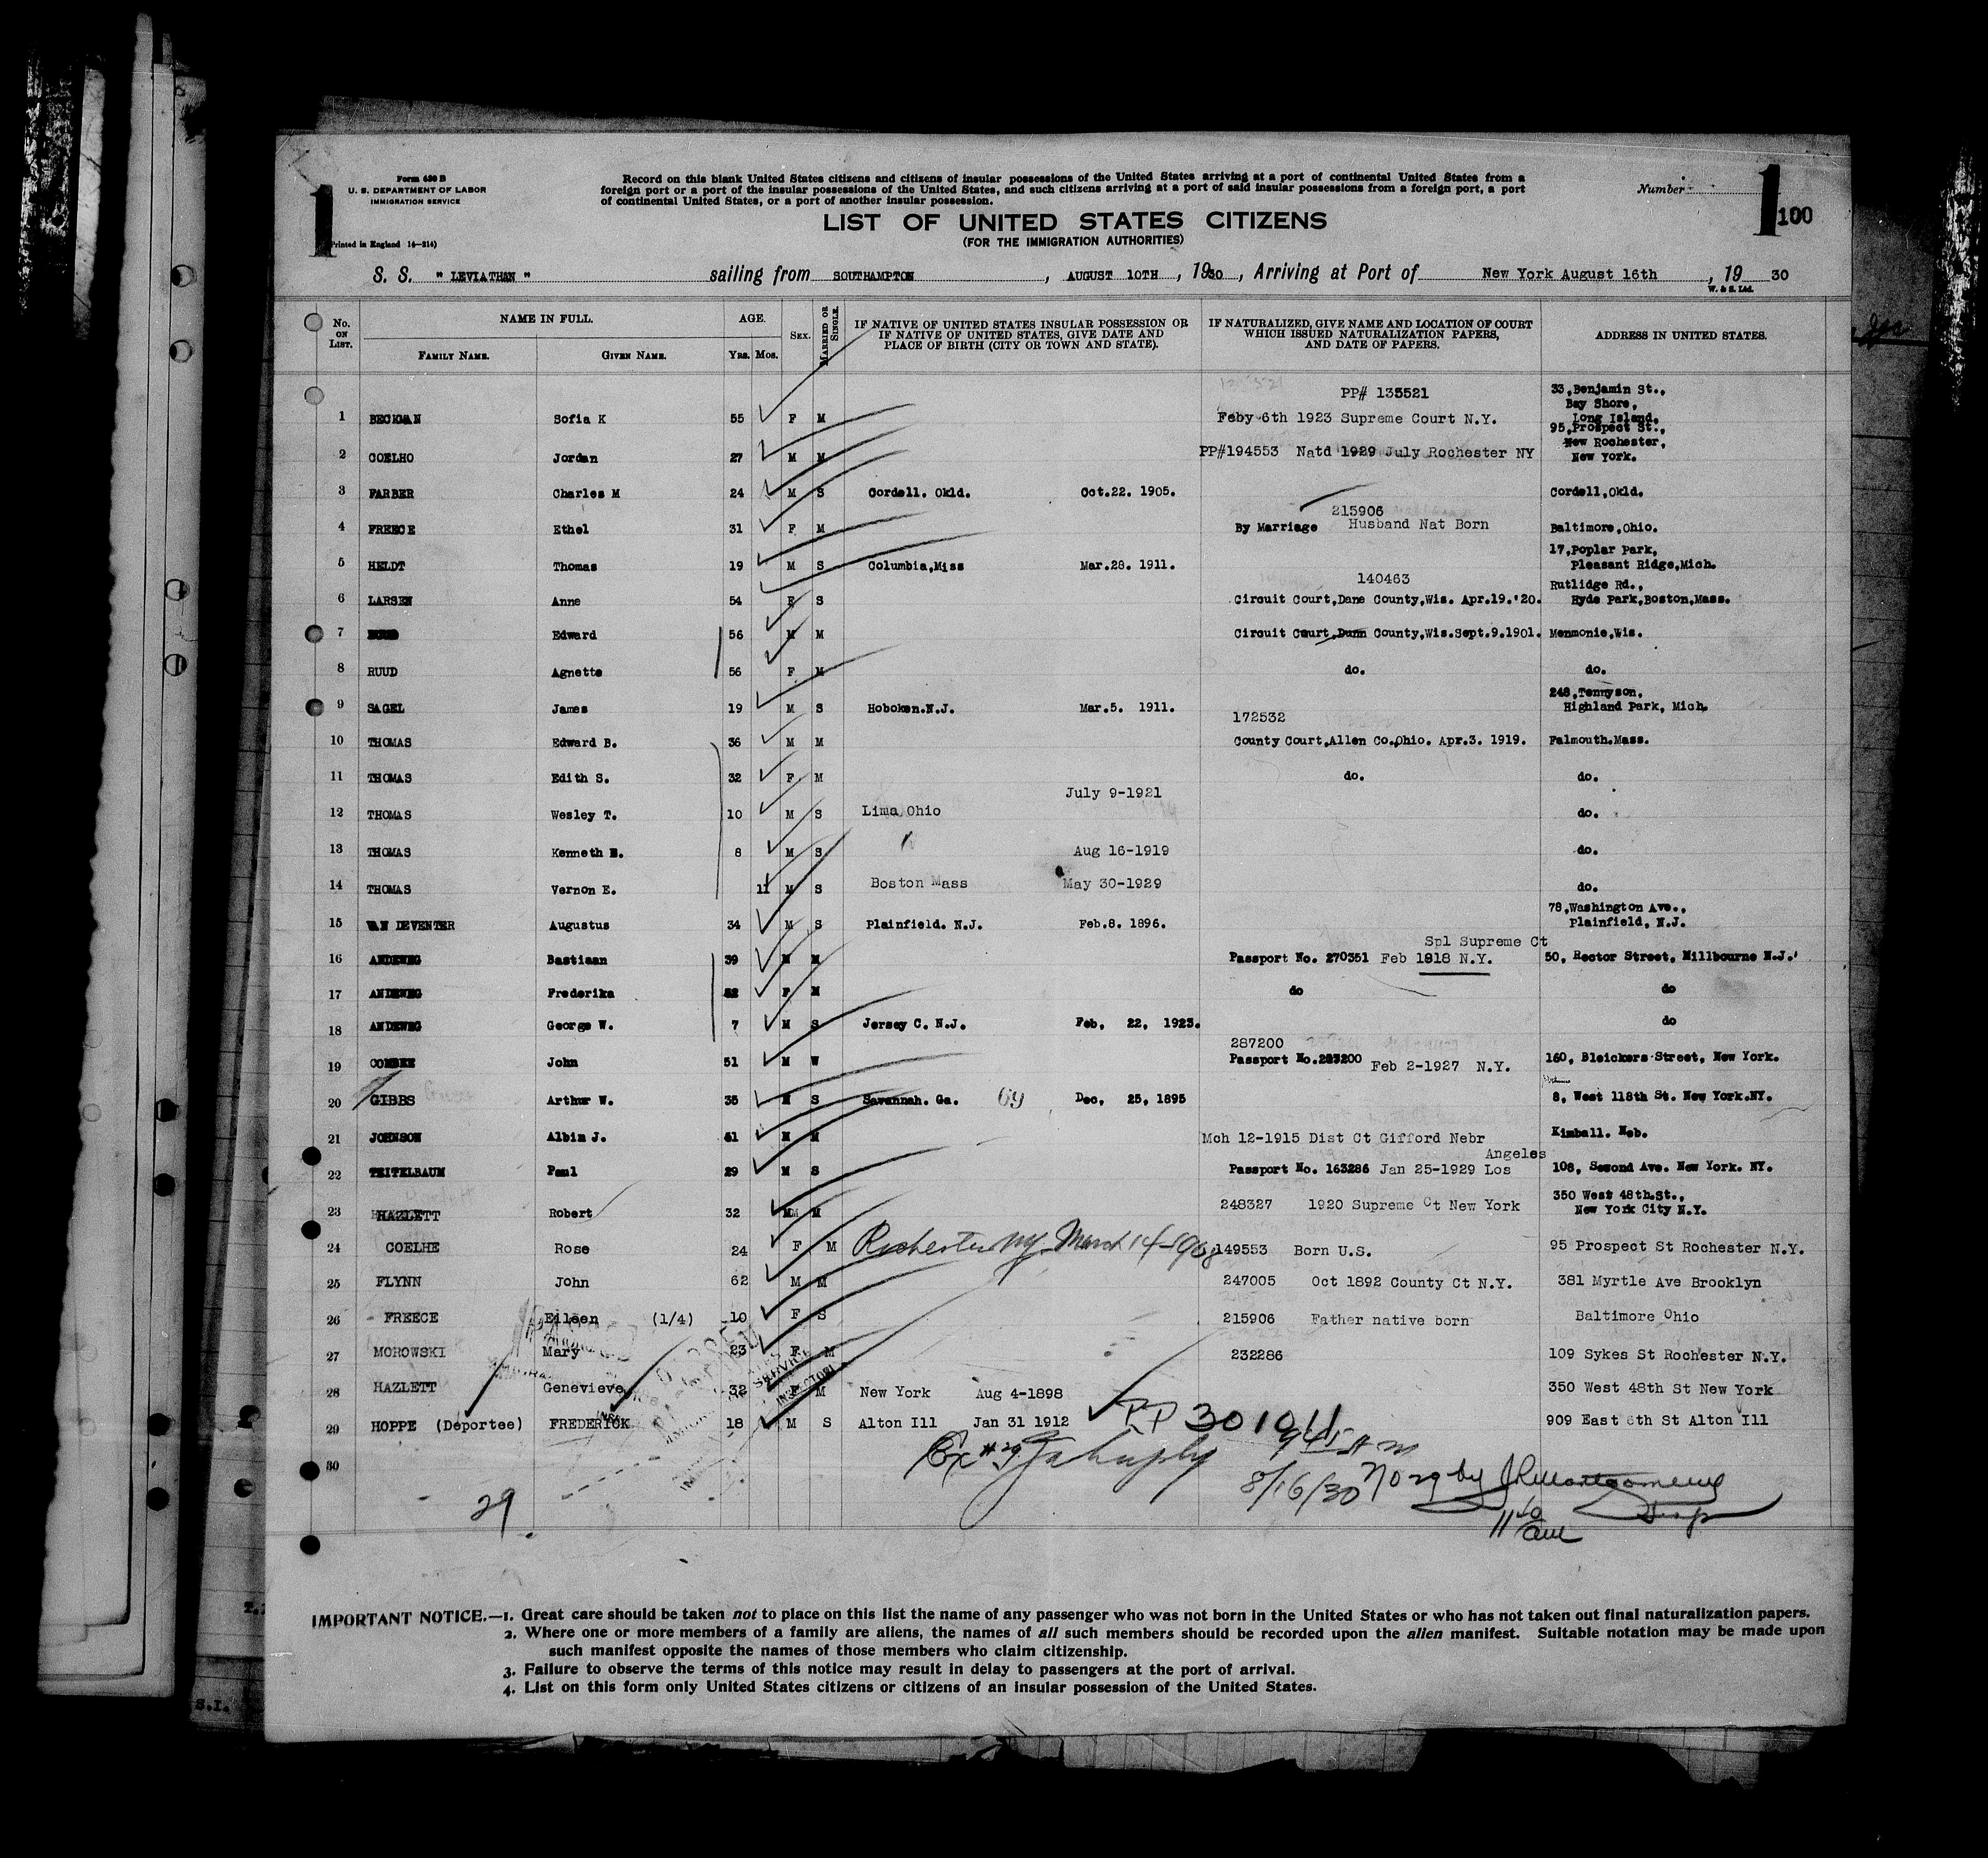 Form 630 B
U. S. DEPARTMENT OF LABOR
IMMIGRATION SERVICE
1
(Printed in England 14—214)
Record on this blank United States citizens and citizens of insular possessions of the United States arriving at a port of continental United States from a
foreign port or a port of the insular possessions of the United States, and such citizens arriving at a port of said insular possessions from a foreign port, a port
of continental United States, or a port of another insular possession.
Number
1 100
LIST OF UNITED STATES CITIZENS
(FOR THE IMMIGRATION AUTHORITIES)
S. S. " LEVIATHAN " sailing from SOUTHAMPTON , AUGUST 10TH , 1930 , Arriving at Port of New York August 16th , 19 30
W. & S. Ltd.
No. ON LIST. NAME IN FULL. FAMILY NAME. GIVEN NAME. AGE. Yrs. Mos. SEX. MARRIED OR SINGLE. IF NATIVE OF UNITED STATES INSULAR POSSESSION OR IF NATIVE OF UNITED STATES, GIVE DATE AND PLACE OF BIRTH (CITY OR TOWN AND STATE). IF NATURALIZED, GIVE NAME AND LOCATION OF COURT WHICH ISSUED NATURALIZATION PAPERS, AND DATE OF PAPERS. ADDRESS IN UNITED STATES.
PP# 135521 33,Benjamin St.,
Bay Shore,
1 BECKMAN Sofia K 55 F M Feby 6th 1923 Supreme Court N.Y. Long Island.
95,Prospect St.,
New Rochester,
2 COELHO Jordan 27 M M PP#194553 Natd 1929 July Rochester NY New York.
3 FARBER Charles M 24 M S Cordell. Okld. Oct.22. 1905. Cordell,Okld.
215906
4 FREECE Ethel 31 F M By Marriage Husband Nat Born Baltimore,Ohio.
17,Poplar Park,
5 HELDT Thomas 19 M S Columbia,Miss Mar.28. 1911. Pleasant Ridge,Mich.
140463 Rutlidge Rd.,
6 LARSEN Anne 54 F S Circuit Court,Dane County,Wis. Apr.19.'20. Hyde Park,Boston,Mass.
7 Edward 56 M M Circuit Court,Dunn County,Wis.Sept.9.1901. Menmonie,Wis.
8 RUUD Agnette 56 F M do. do.
248,Tennyson,
9 SAGEL James 19 M S Hoboken.N.J. Mar.5. 1911. Highland Park, Mich.
172532
10 THOMAS Edward B. 36 M M County Court,Allen Co.,Ohio. Apr.3. 1919. Falmouth.Mass.
11 THOMAS Edith S. 32 F M do. do.
July 9-1921
12 THOMAS Wesley T. 10 M S Lima Ohio do.
13 THOMAS Kenneth E. 8 M S Aug 16-1919 do.
14 THOMAS Vernon E. 11 M S Boston Mass May 30-1929 do.
78,Washington Ave.,
15 VAN DEVENTER Augustus 34 M S Plainfield. N.J. Feb.8. 1896. Plainfield, N.J.
Spl Supreme Ct
16 ANDEWEG Bastiaan 39 M M Passport No. 270351 Feb 1918 N.Y. 50, Rector Street, Millbourne N.J.
17 ANDEWEG Frederika 32 F M do do
18 ANDEWEG George W. 7 M S Jersey C. N.J. Feb, 22, 1923. do
287200
19 COMBEE John 51 M W Passport No.287200 Feb 2-1927 N.Y. 160, Bleickers Street, New York.
20 GIBBS Arthur W. 35 M S Savannah. Ga. 69 Dec, 25, 1895 8, West 118th St. New York.NY.
21 JOHNSON Albin J. 41 M M Mch 12-1915 Dist Ct Gifford Nebr Kimball. Neb.
Angeles
22 TEITELBAUM Paul 29 M S Passport No. 163286 Jan 25-1929 Los 108, Second Ave. New York. NY.
350 West 48th.St.,
23 HAZLETT Robert 32 M M 248327 1920 Supreme Ct New York New York City N.Y.
24 COELHE Rose 24 F M Rochester NY March 14-1908 149553 Born U.S. 95 Prospect St Rochester N.Y.
25 FLYNN John 62 M M 247005 Oct 1892 County Ct N.Y. 381 Myrtle Ave Brooklyn
26 FREECE Eileen (1/4) 10 F S 215906 Father native born Baltimore Ohio
27 MOROWSKI Mary 23 F M 232286 109 Sykes St Rochester N.Y.
28 HAZLETT Genevieve 32 F M New York Aug 4-1898 350 West 48th St New York
29 HOPPE (Deportee) FREDERICK 18 M S Alton Ill Jan 31 1912 PP 301911 909 East 6th St Alton Ill
30 Ex #29 945 AM
8/16/30 No 29 by J R Montgomery
Insp
11 40 am
29
IMPORTANT NOTICE.—1. Great care should be taken not to place on this list the name of any passenger who was not born in the United States or who has not taken out final naturalization papers.
2. Where one or more members of a family are aliens, the names of all such members should be recorded upon the alien manifest. Suitable notation may be made upon
such manifest opposite the names of those members who claim citizenship.
3. Failure to observe the terms of this notice may result in delay to passengers at the port of arrival.
4. List on this form only United States citizens or citizens of an insular possession of the United States.
S.I.